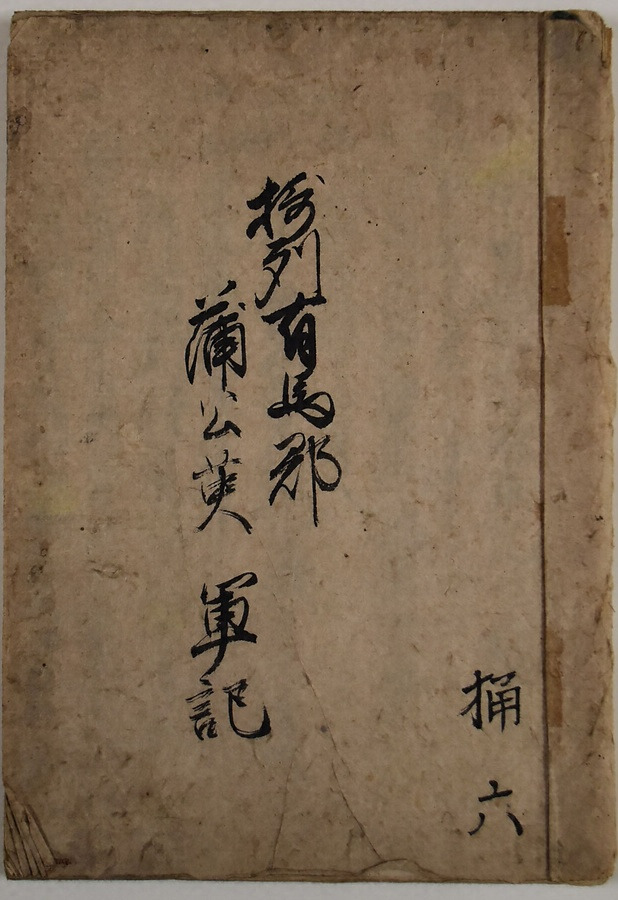 摂州有馬郡
蒲公英 軍記
桶 六